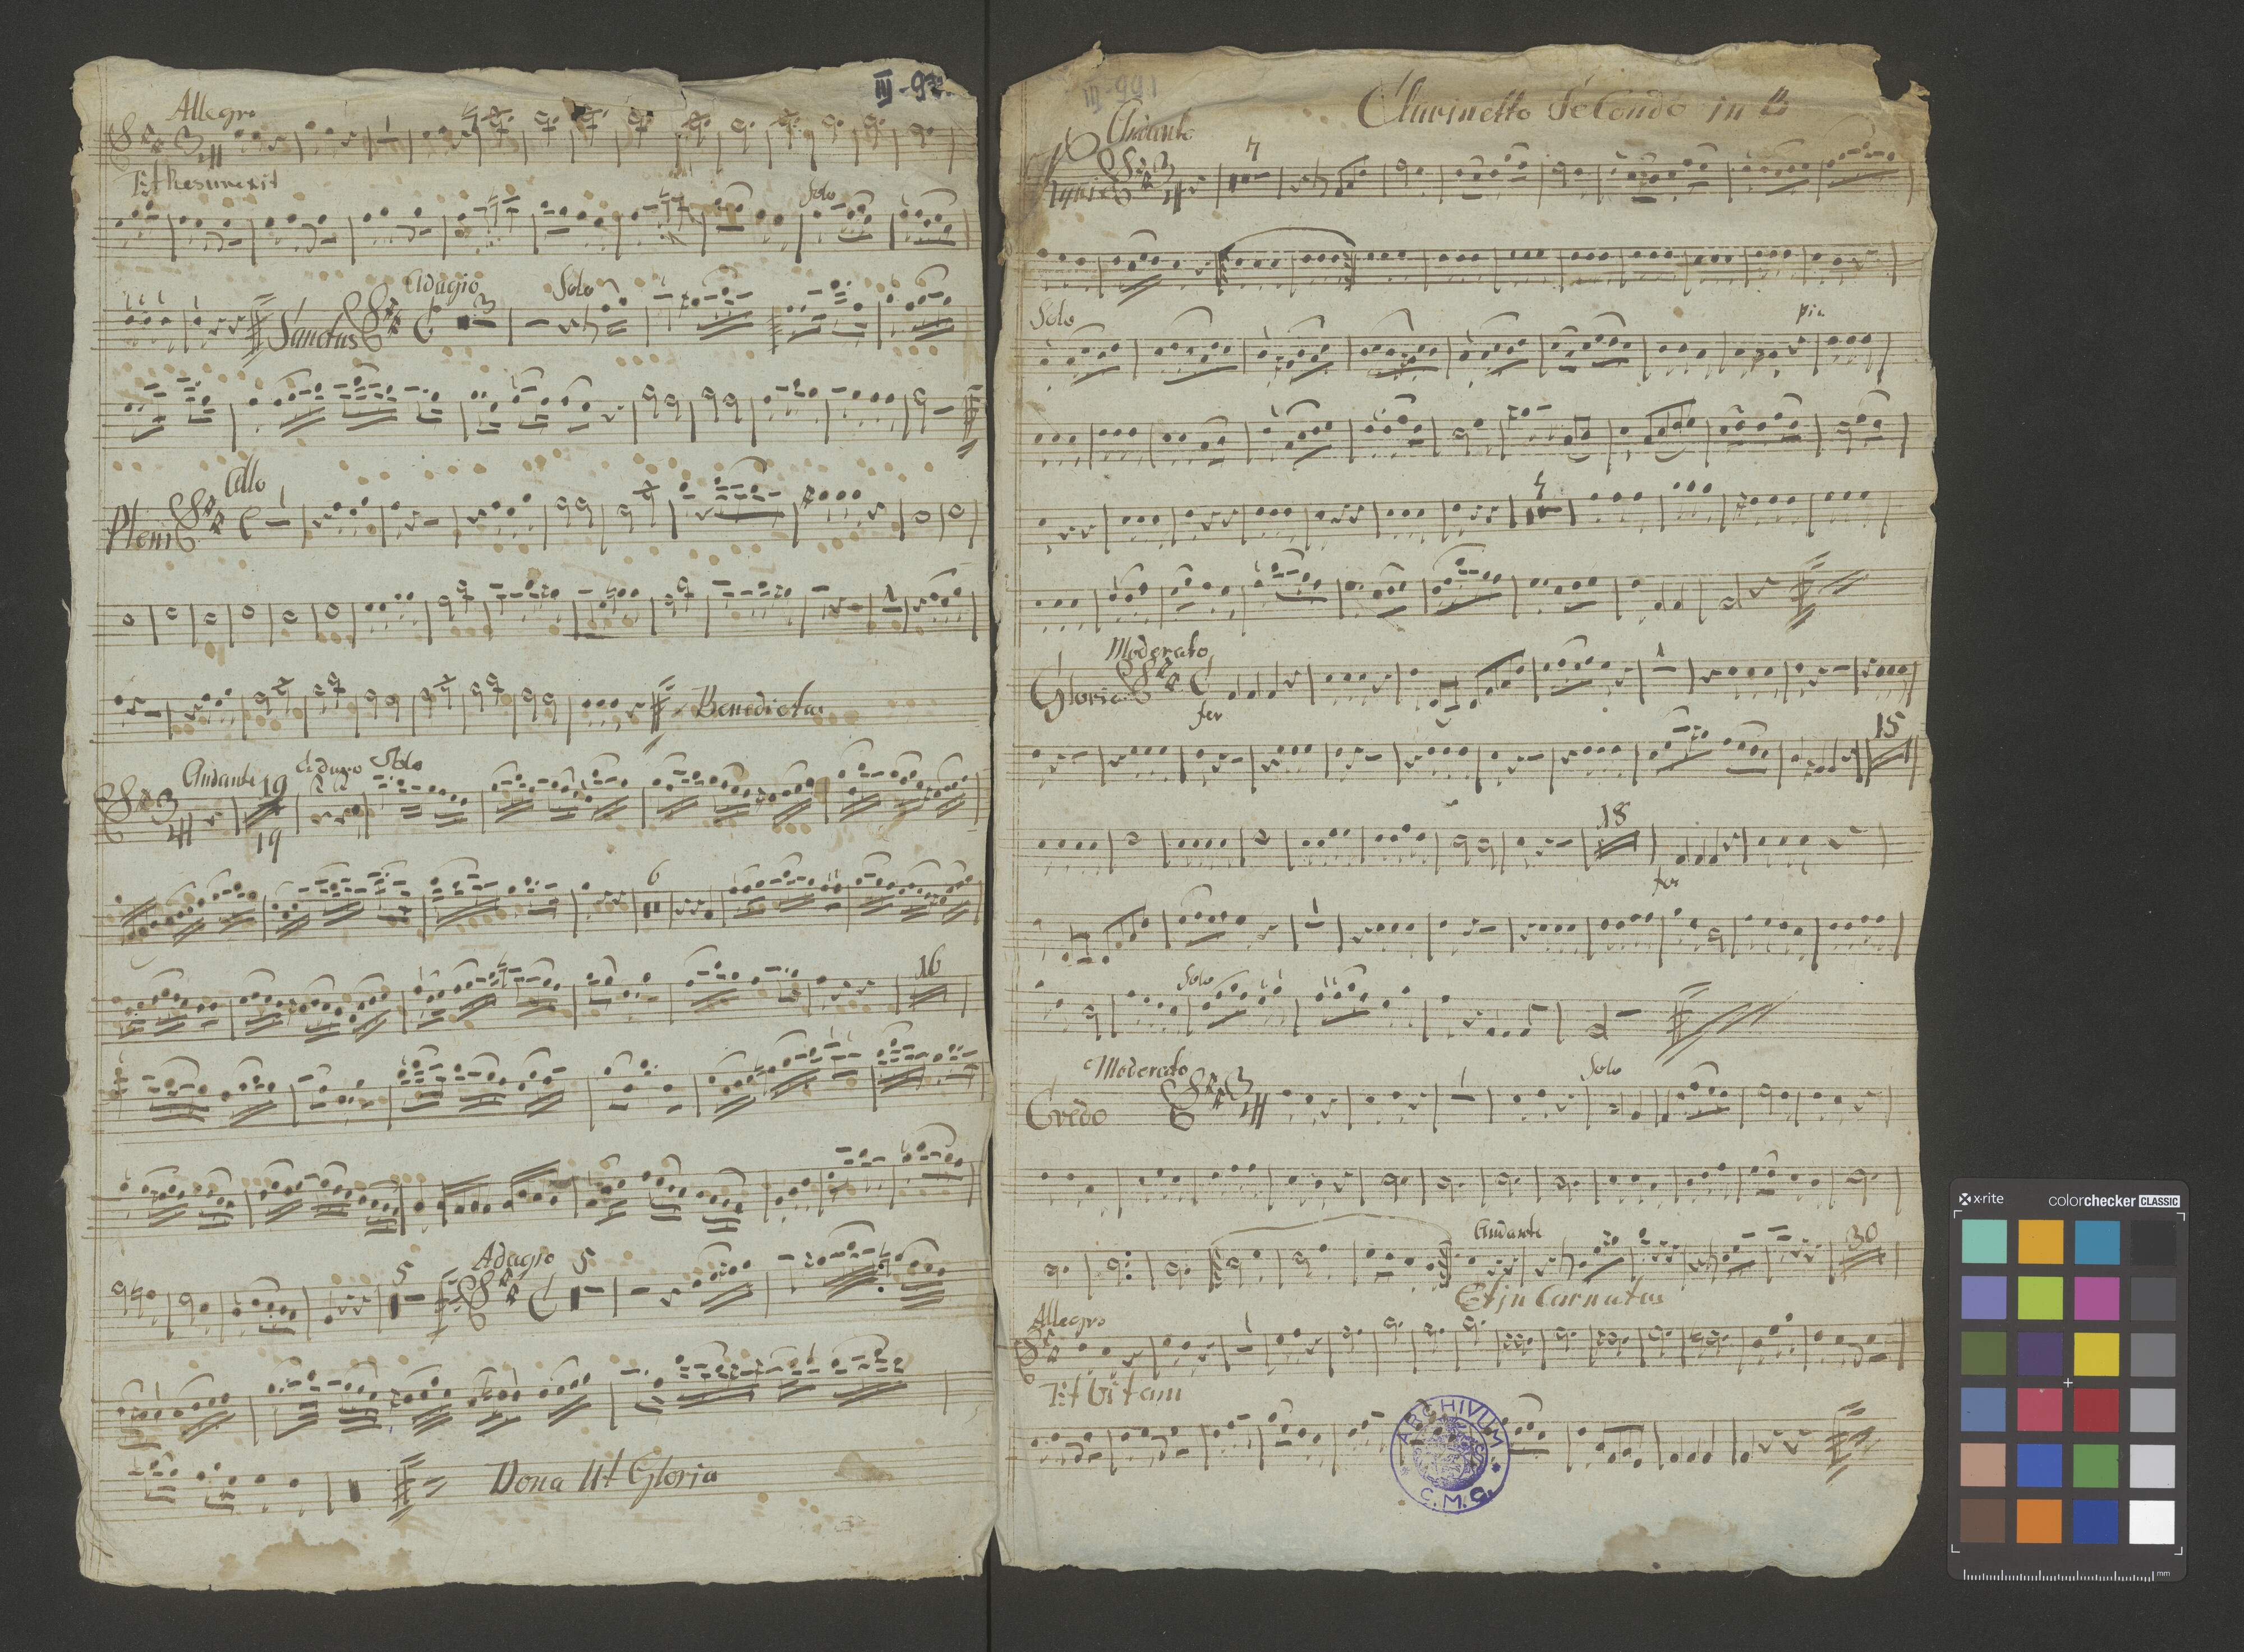 III-92.
Allegro
4
Et Resurrexit
Solo
Adagio
Solo
Sanctus
3
Allo
Pleni
1
Benedictus
Andante
19
Solo
3
4
19
6
16
5
Adagio
5
Dona Ut Gloria
III-991
Clarinetto Secondo in B
Andante
Kyrie
3
4
4
Solo
pia
4
Moderato
Gloria
for
1
15
18
for
1
Solo
Moderato
Solo
Credo
3
4
1
Andante
30
Et in Carnatus
Allegro
1
Et Vitam
ARCHIVUM
C.M.
x-rite
colorchecker CLASSIC
mm